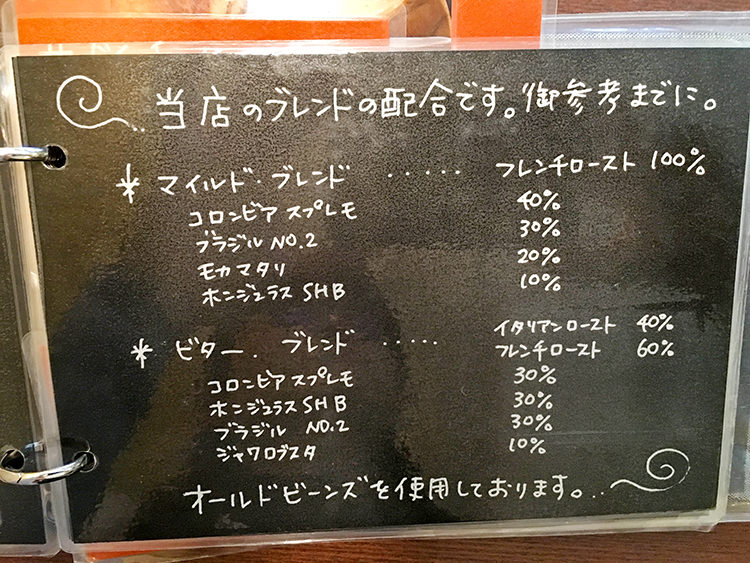 当店のブレンドの配合です。御参考までに。
* マイルド・ブレンド ・・・・・ フレンチロースト 100%
コロンビア スプレモ 40%
ブラジル NO.2 30%
モカマタリ 20%
ホンジュラス SHB 10%
イタリアンロースト 40%
* ビター・ブレンド ・・・・・ フレンチロースト 60%
コロンビア スプレモ 30%
ホンジュラス SHB 30%
ブラジル NO.2 30%
ジャワロブスタ 10%
オールドビーンズを使用しております。